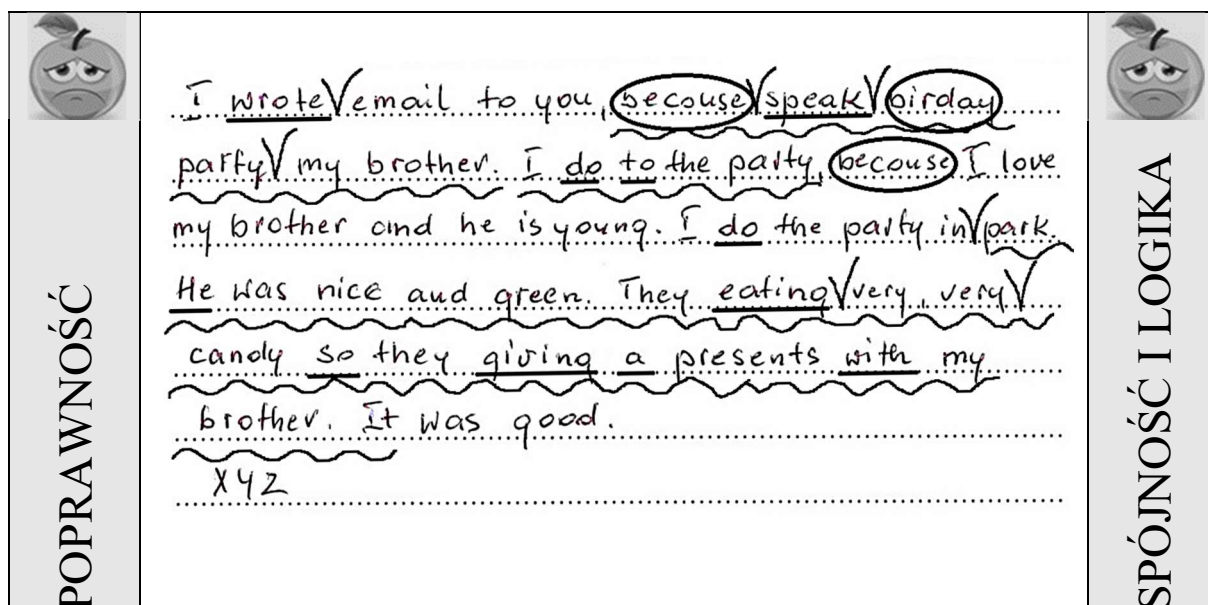 I wrote email to you, becouse speak birday
party my brother. I do to the party, becouse I love
my brother and he is young. I do the party in park.
He was nice and green. They eating very, very
candy so they giving a presents with my
brother. It was good.
XYZ
POPRAWNOŚĆ
SPÓJNOŚĆ I LOGIKA